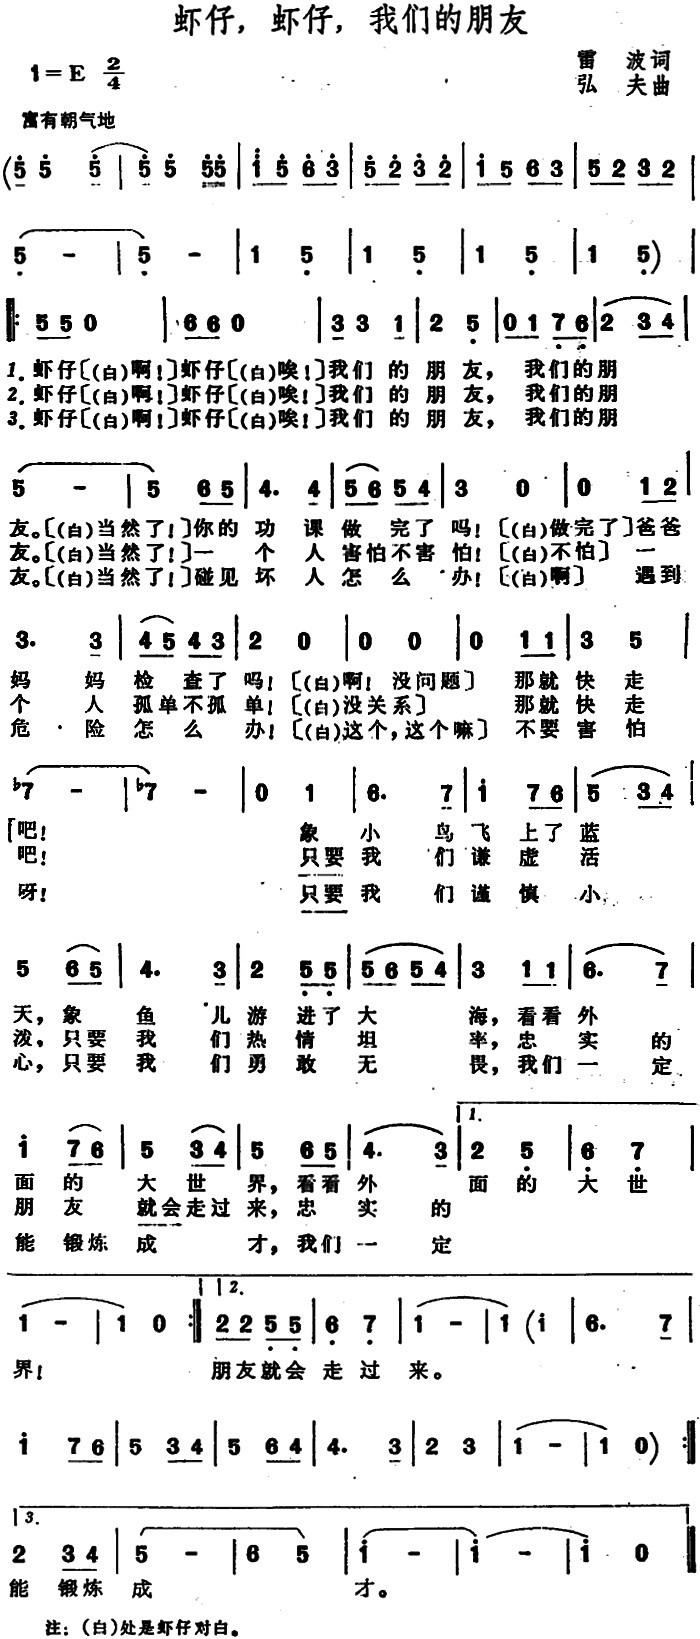 虾仔，虾仔，我们的朋友
1=E 2/4
雷 波词
弘 夫曲
富有朝气地
(5 5 5 | 5 5 55 | 1 5 6 3 | 5 2 3 2 | 1 5 6 3 | 5 2 3 2 |
5 - | 5 - | 1 5 | 1 5 | 1 5 | 1 5) |
‖: 5 5 0 | 6 6 0 | 3 3 1 | 2 5 | 0 1 7 6 | 2 3 4 |
1.虾仔〔(白)啊！〕虾仔〔(白)唉！〕我们 的 朋 友， 我们的朋
2.虾仔〔(白)啊！〕虾仔〔(白)唉！〕我们 的 朋 友， 我们的朋
3.虾仔〔(白)啊！〕虾仔〔(白)唉！〕我们 的 朋 友， 我们的朋
5 - | 5 6 5 | 4. 4 | 5 6 5 4 | 3 0 | 0 1 2 |
友。〔(白)当然了！〕你的 功 课 做 完了 吗！〔(白)做完了〕爸爸
友。〔(白)当然了！〕一 个 人 害怕不害 怕！〔(白)不怕〕 一
友。〔(白)当然了！〕碰见 坏 人 怎 么 办！〔(白)啊〕 遇到
3. 3 | 4 5 4 3 | 2 0 | 0 0 | 0 1 1 | 3 5 |
妈 妈 检 查了 吗！〔(白)啊！没问题〕 那就 快 走
个 人 孤单不孤 单！〔(白)没关系〕 那就 快 走
危 险 怎 么 办！〔(白)这个，这个嘛〕 不要 害 怕
♭7 - | ♭7 - | 0 1 | 6. 7 | i 7 6 | 5 3 4 |
吧！ 象 小 鸟 飞 上了 蓝
吧！ 只要 我 们 谦 虚 活
呀！ 只要 我 们 谨 慎 小
5 6 5 | 4. 3 | 2 5 5 | 5 6 5 4 | 3 1 1 | 6. 7 |
天，象 鱼 儿 游 进了 大 海，看看 外
泼，只要 我 们 热 情 坦 率，忠 实 的
心，只要 我 们 勇 敢 无 畏，我们 一 定
i 7 6 | 5 3 4 | 5 6 5 | 4. 3 |1. 2 5 | 6 7 |
面 的 大 世 界，看看 外 面 的 大 世
朋 友 就会 走过 来，忠 实 的
能 锻炼 成 才，我们 一 定
1 - | 1 0 :‖2. 2 2 5 5 | 6 7 | 1 - | 1 (i | 6. 7 |
界！ 朋友就会 走 过 来。
i 7 6 | 5 3 4 | 5 6 4 | 4. 3 | 2 3 | 1 - | 1 0) :‖
3.
2 3 4 | 5 - | 6 5 | i - | i - | i 0 ‖
能 锻炼 成 才。
注：(白)处是虾仔对白。